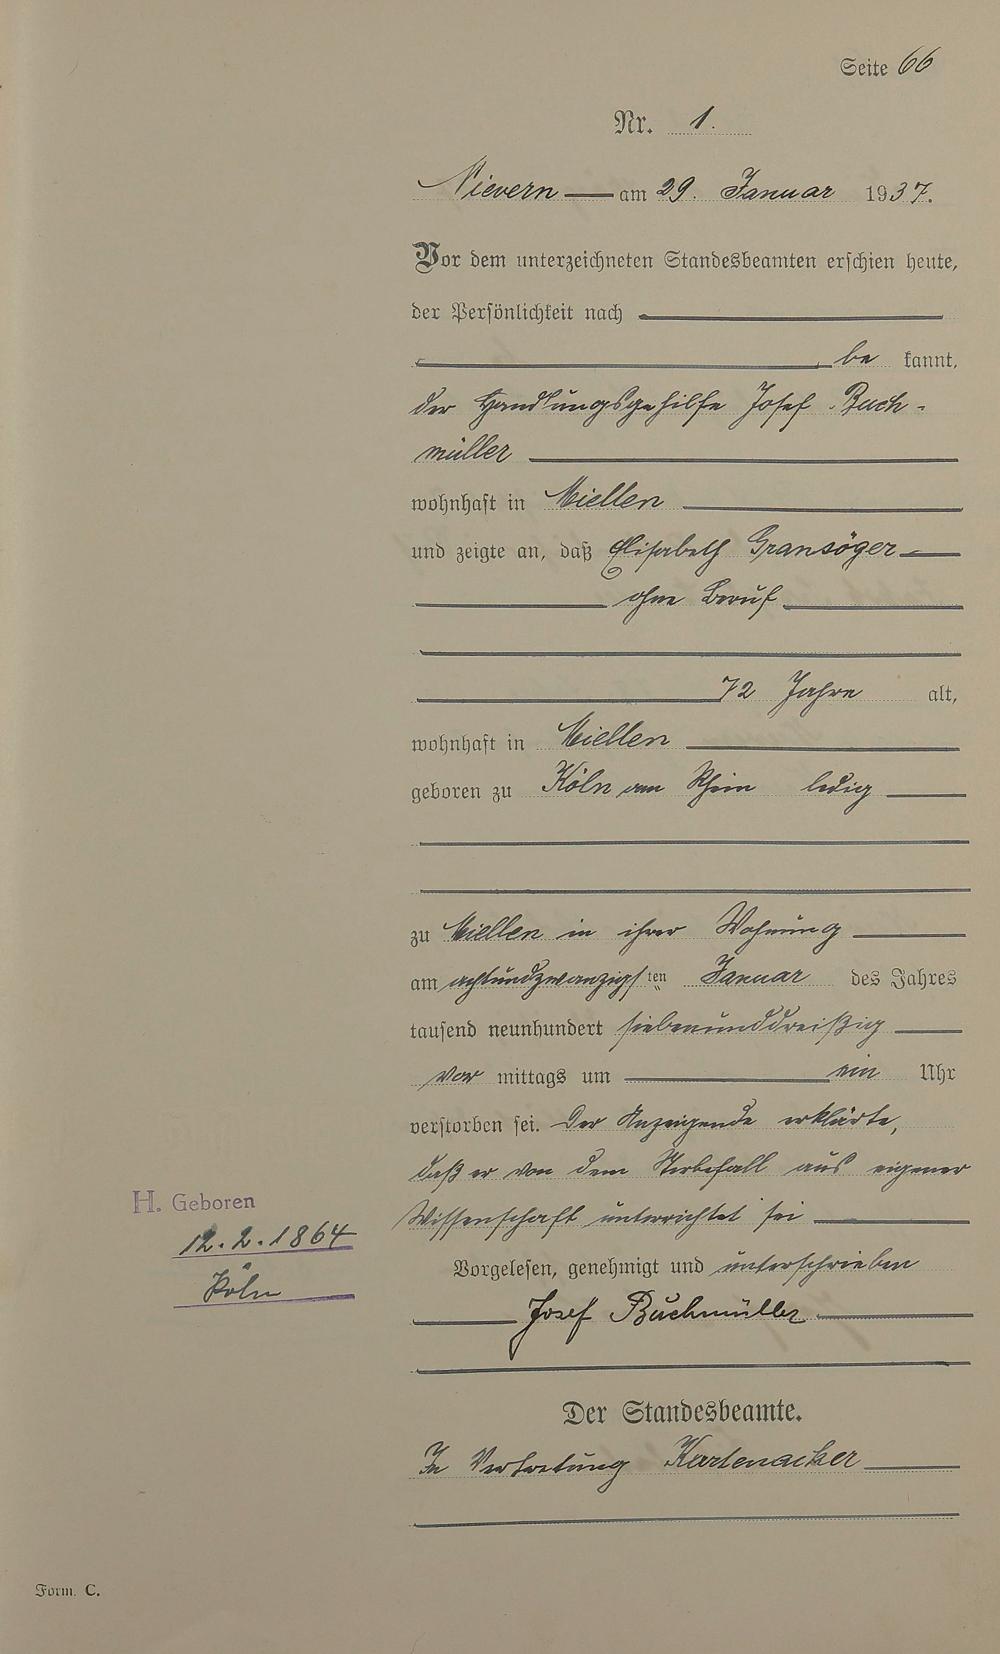 Seite 66
Nr. 1.
Nievern am 29. Januar 1937.
Vor dem unterzeichneten Standesbeamten erschien heute,
der Persönlichkeit nach
be kannt,
der Handlungsgehilfe Josef Buch-
müller
wohnhaft in Miellen
und zeigte an, daß Elisabeth Gransöger
ohne Beruf
72 Jahre alt,
wohnhaft in Miellen
geboren zu Köln am Rhein ledig
zu Miellen in ihrer Wohnung
am achtundzwanzigsten Januar des Jahres
tausend neunhundert siebenunddreißig
vor mittags um ein Uhr
verstorben sei. Der Anzeigende erklärte,
daß er von dem Sterbefall aus eigener
Wissenschaft unterrichtet sei
Vorgelesen, genehmigt und unterschrieben
Josef Buchmüller
Der Standesbeamte.
In Vertretung Kartenacker
H. Geboren
12.2.1864
Köln
Form. C.